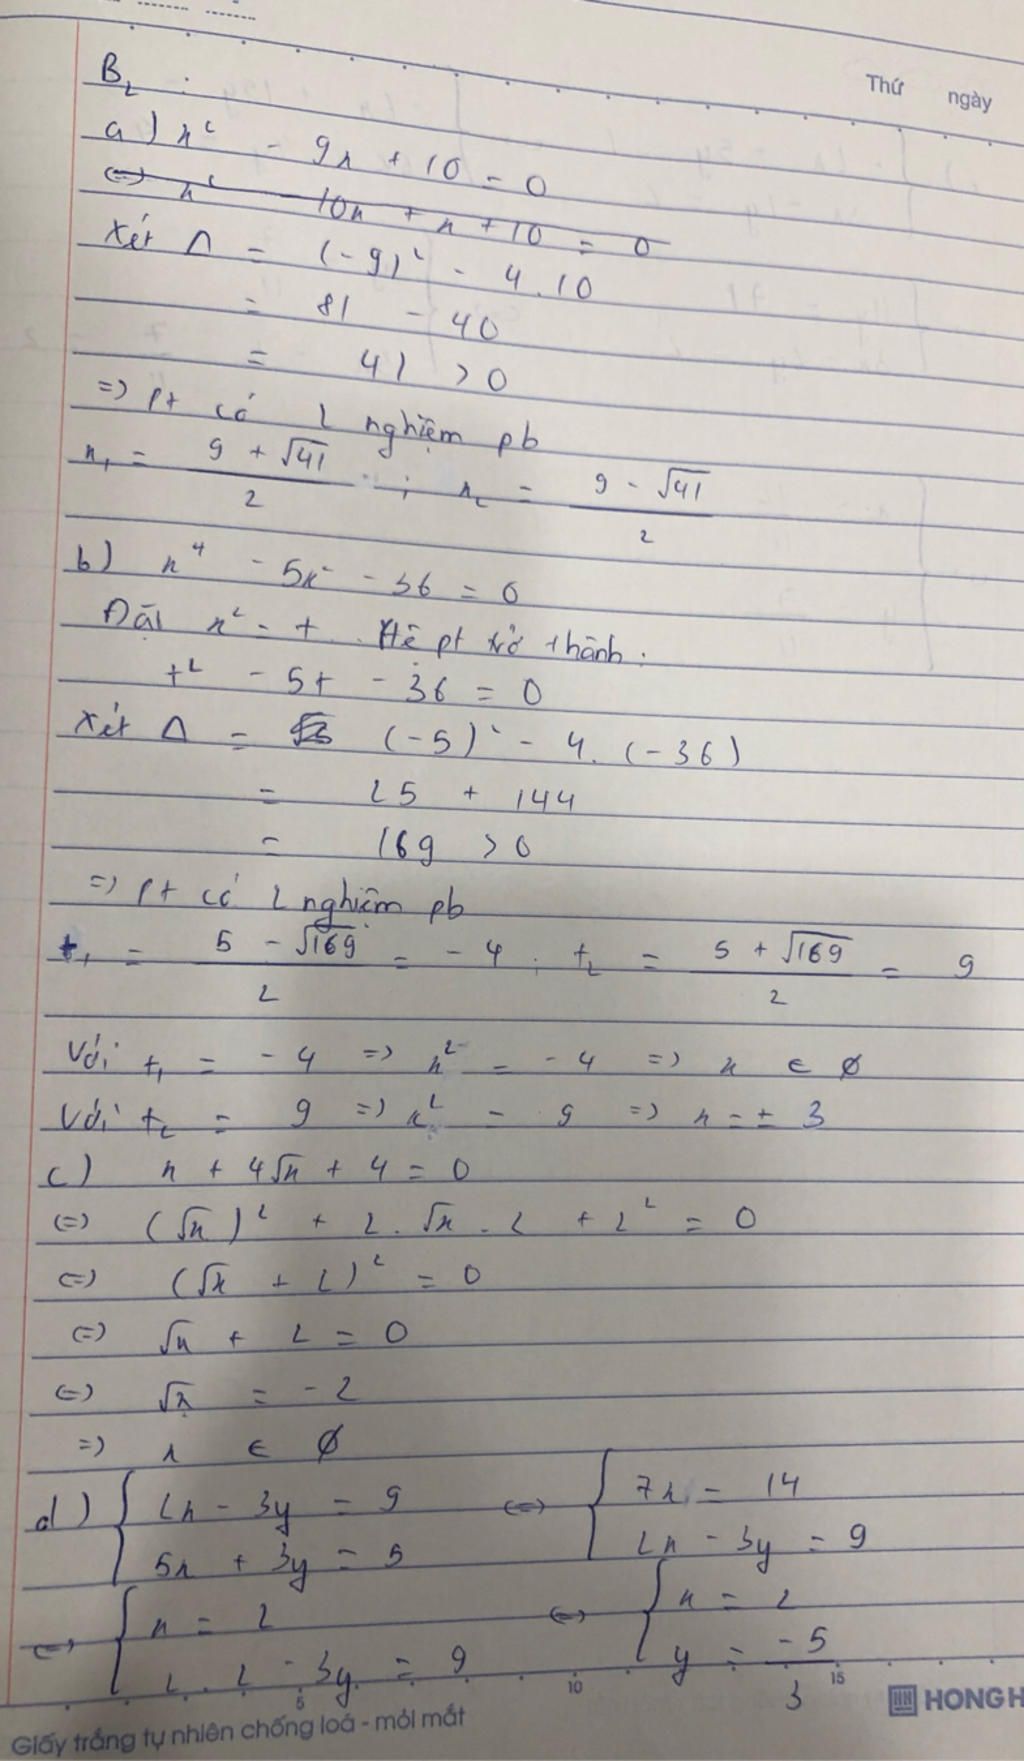 Thứ ngày
B2 :
a) x² - 9x + 10 = 0
(=) x² - 10x + x + 10 = 0
Xét Δ = (-9)² - 4.10
= 81 - 40
= 41 > 0
=> Pt có 2 nghiệm pb
x₁ = (9 + √41)/2 ; x₂ = (9 - √41)/2
b) x⁴ - 5x² - 36 = 0
Đặt x² = t. Hệ pt trở thành :
t² - 5t - 36 = 0
Xét Δ = (-5)² - 4.(-36)
= 25 + 144
= 169 > 0
=> Pt có 2 nghiệm pb
t₁ = (5 - √169)/2 = -4 ; t₂ = (5 + √169)/2 = 9
Với t₁ = -4 => x² = -4 => x ∈ ∅
Với t₂ = 9 => x² = 9 => x = ± 3
c) x + 4√x + 4 = 0
(=) (√x)² + 2.√x.2 + 2² = 0
(=) (√x + 2)² = 0
(=) √x + 2 = 0
(=) √x = -2
=) x ∈ ∅
d) { 2x - 3y = 9 (=) { 7x = 14
5x + 3y = 5 2x - 3y = 9
(=) { x = 2 (=) { x = 2
2.2 - 3y = 9 y = -5/3
5 10 15
HONG H
Giấy trắng tự nhiên chống loá - mỏi mắt